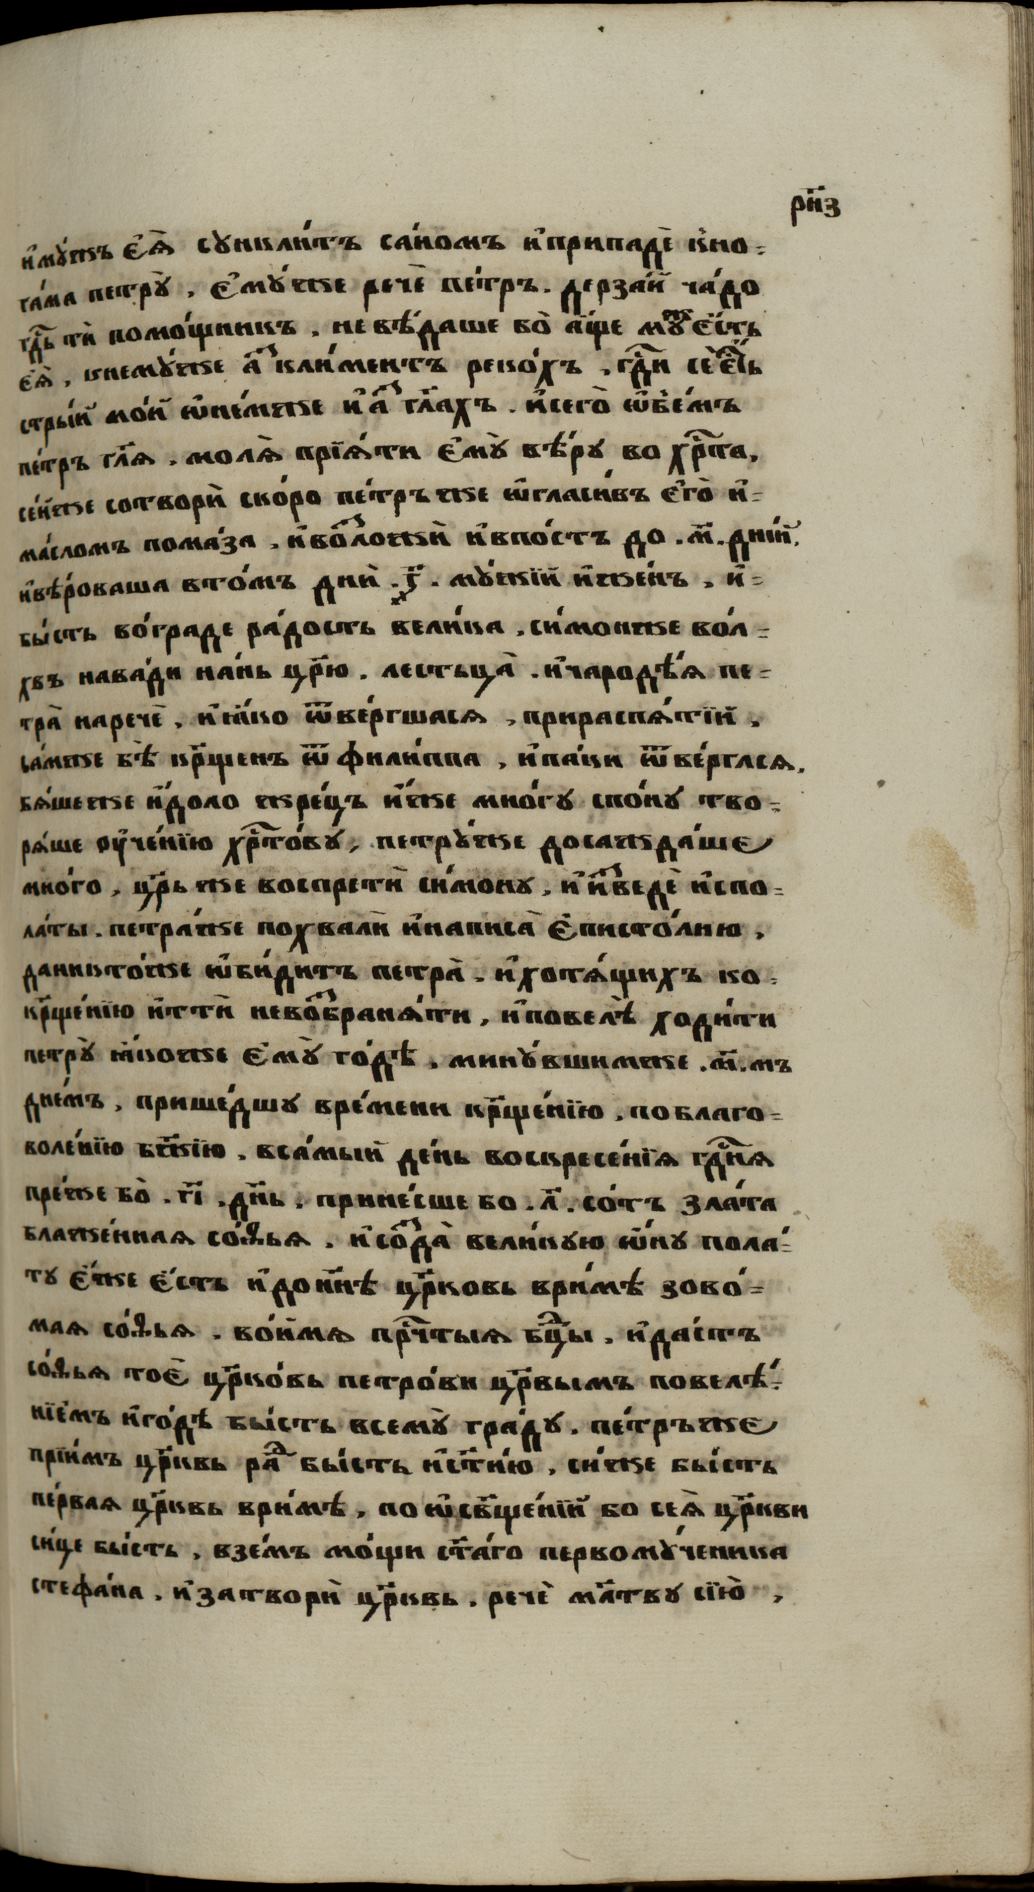 рн҃з
и҆мꙋ́жъ є҆ѧ̀ сѹнкли́тъ са́номъ и҆припадѐ к̾но=
га́ма петрꙋ̀, є҆мꙋ́же речѐ пе́тръ. дерза́й ча́до
гд҃ь тѝ помо́щникъ, не вѣ́даше бо̀ а҆́ще мꙋⷤ є҆́сть
є҆ѧ̀, кнемꙋ́же а҆́зъ кли́ментъ реко́хъ, гд҃и се є҆́сть
стры́й мо́й ѡ҆не́мже и҆ а҆́зъ гл҃ахъ. и҆сего̀ ѡ҆б̾е́мъ
пе́тръ гл҃ѧ, молѧ̀ прїѧ́ти є҆мꙋ̀ вѣ́рꙋ во хрⷭ҇та̀,
се́йже сотворѝ ско́ро пе́тръже ѡ҆гласи́въ є҆го̀ и҆=
ма́сломъ пома́за, и҆возложѝ и҆впо́стъ до .м҃. дні́й,
и҆вѣ́роваша вто́мъ днѝ .҂г҃. мꙋ́жїй и҆же́нъ, и҆=
бы́сть во́граде ра́дость вели́ка, си́монже вол=
хвъ нава́ди на́нь цр҃ю, лестьца̀. и҆чародѣ́ѧ пе=
тра̀ наречѐ, и҆ ꙗ҆́ко ѿве́ргшасѧ, прираспѧ́тїй,
са́мже бѣ̀ кр҃щенъ ѿ фили́ппа, и҆па́ки ѿве́рглсѧ,
бѧ́шеже и҆́доло жре́цъ и҆́же мно́гꙋ спо́нꙋ тво=
рѧ́ше ᲂу҆че́нїю хрⷭ҇то́вꙋ, петрꙋ́же досажда́ше
мно́го, цр҃ь же воспретѝ си́монꙋ, и҆ и҆зведѐ и҆спо=
ла́ты. петра́же похвалѝ и҆написа̀ є҆писто́лию,
даникто́же ѡ҆би́дитъ петра̀, и҆хотѧ́щихъ ко=
кр҃ще́нїю и҆ттѝ невозбранѧ́ти, и҆повелѣ̀ ходи́ти
петрꙋ̀ ꙗ҆́коже є҆мꙋ̀ го́дѣ, минꙋ́вшимже .м҃.мъ
дне́мъ, прише́дшꙋ вре́мени кр҃ще́нїю, поблаго=
воле́нїю бж҃їю, вса́мый де́нь воскресе́нїѧ гдⷭ҇нѧ
пре́же бо̀ .гі҃. дн҃ь, прине́сше бо .л҃. со́тъ зла́та
блаже́ннаѧ со́ѳьѧ. и҆ созда̀ вели́кꙋю ѡ҆́нꙋ пола́=
тꙋ є҆́же є҆́сть и҆ дони́нѣ цр҃ковь ври́мѣ зово́=
маѧ со́ѳьѧ. во́имѧ прⷭ҇тыѧ бцⷣы, и҆да́стъ
со́ѳьѧ тоѐ цр҃ко́вь петро́ви цр҃вымъ повелѣ́=
нїе́мъ и҆го́дѣ бы́сть всемꙋ̀ гра́дꙋ. пе́тръже
прїи́мъ цр҃квь ра́дъ бы́сть и҆ ст҃ию̀, си́же бы́сть
пе́рваѧ цр҃квь ври́мѣ, по ѡ҆св҃ще́нїй бо сеѧ̀ цр҃кви
си́це бы́сть, взе́мъ мо́щи ст҃а́го первомꙋ́ченика
стефа́на, и҆ затворѝ цр҃квь, речѐ мл҃твꙋ сїю̀,